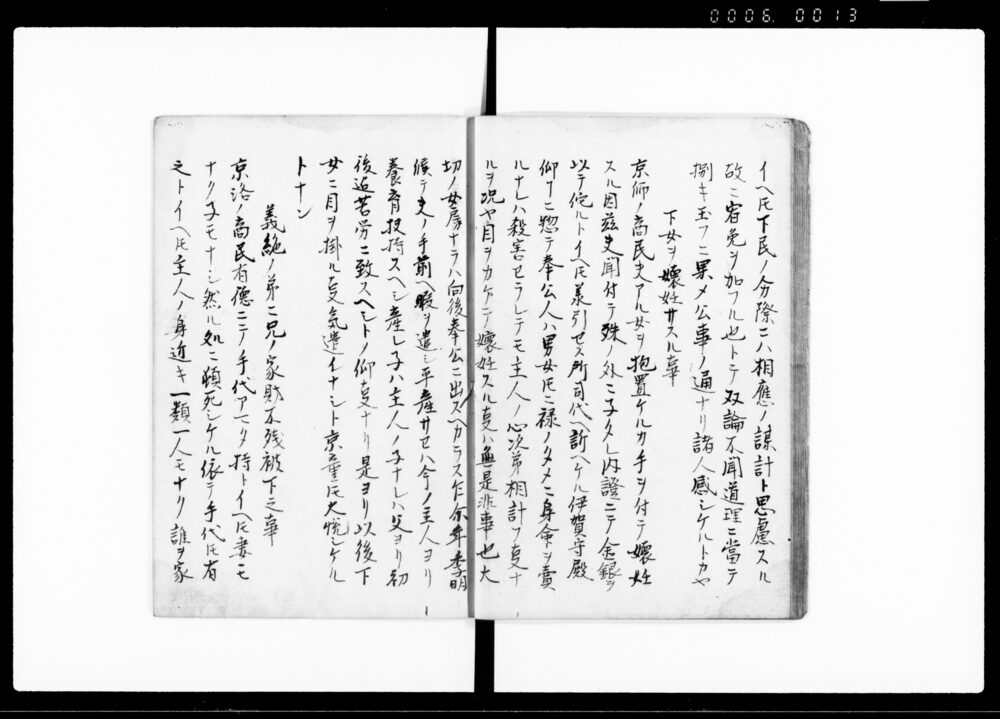 0006. 0013
イヘ𪜈下民ノ分際ニハ相應ノ謀計ト思慮スル
故ニ宥免ヲ加フル也トテ双論不聞道理ニ當テ
捌キ玉フニ果メ公事ノ通ナリ諸人感シケルトカヤ
下女ヲ懐妊サスル事
京師ノ商民夫アル女ヲ抱置ケルカ手ヲ付テ懐妊
スル因茲夫聞付テ殊ノ外ニ子タレ内證ニテ金銀ヲ
以テ侘ルトイヘ𪜈承引セス所司代ヘ訴ヘケル伊賀守殿
仰ケルニ惣テ奉公人ハ男女𪜈ニ禄ノタメニ身命ヲ賣
ルナレハ殺害セラレテモ主人ノ心次第相計フ事ナ
ルヲ况ヤ目ヲカケテ懐妊スル事ハ無是非事也大
切ノ女房ナラハ向後奉公ニ出スヘカラス尤年季明
候テ夫ノ手前ヘ暇ヲ遣シ平産サセハ今ノ主人ヨリ
養育扶持スヘシ産レ子ハ主人ノ子ナレハ父ヨリ初
後迠苦労ニ致スヘシトノ仰事ナリ是ヨリ以後下
女ニ目ヲ掛ル事氣遣イナシト京童𪜈大悦シケル
トナン
義絶ノ弟ニ兄ノ家財不残被下之事
京洛ノ商民有德ニテノ手代アマタ持トイヘ𪜈妻モ
ナク子モナシ然ル処ニ頓死シケル依テ手代𪜈有
之トイヘ𪜈主人ノ身近キ一類一人モナク誰ヲ家